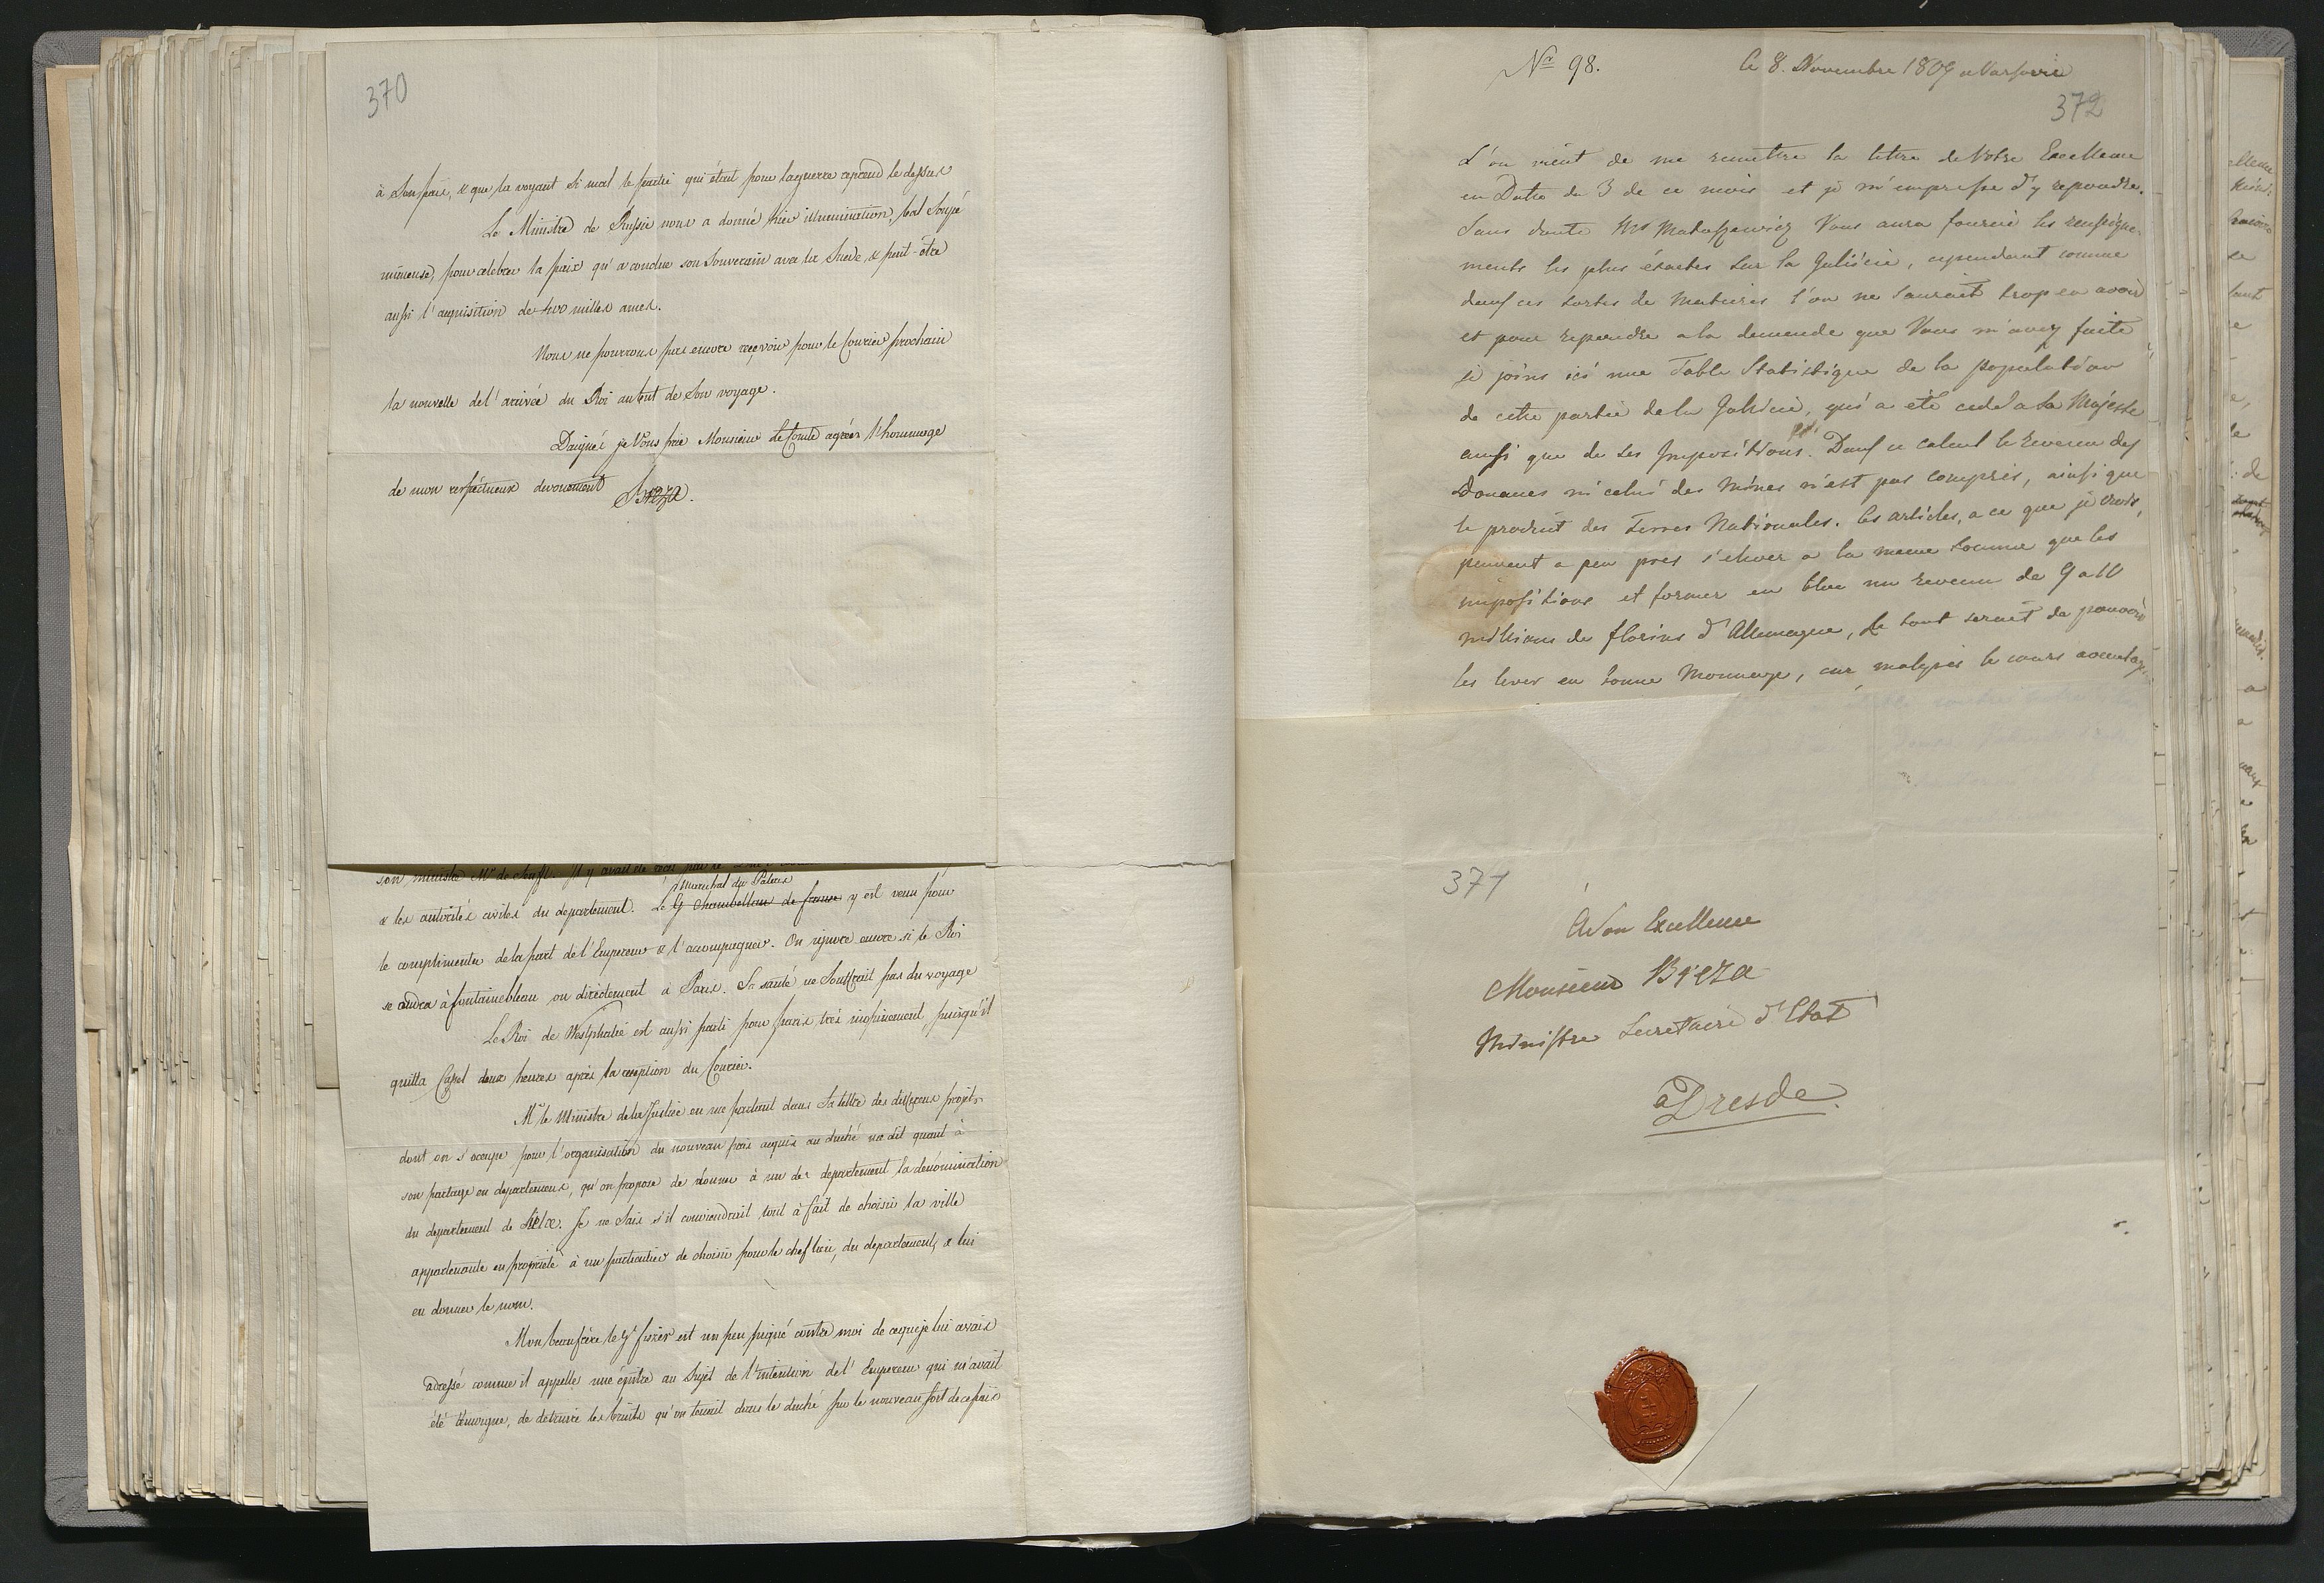 370
à Son païs, & que la voyant si mal le parti qui était pour la guerre reprend le dessus
Le Ministre de Russie nous a donné hier illumination, bal Soupé
pour celebrer la paix qu'a conclue son Souverain avec la Suede, & peut-être
aussi l'acquisition de 400 milles ames.
Nous ne pourrons pas encore reçevoir pour le Courier prochain
la nouvelle de l'arrivée du Roi au but de Son voyage.
Daignés je Vous prie Monsieur le Comte agréer l'hommage
de mon respectueux devouement Breza.
son ministre Mr de Senfft. Il y avait
Marechal du Palais
& les autorités civiles du departement. Le G Chambellan de france y est venu pour
le complimenter de la part de l'Empereur & l'accompagner. On ignore encore si le Roi
se rendra à fontainebleau ou directement à Paris. Sa santé ne Souffrait pas du voyage
Le Roi de Westphalie est aussi parti pour paris très inopinement, puisqu'il
quitta Cassel deux heures après la reception du Courier.
Mr le Ministre de la Justice en me parlant dans Sa lettre des differens projets
dont on s'occupe pour l'organisation du nouveau païs acquis au duché me dit quant à
son partage en departemens, qu'on propose de donner à un des departement la denomination
du departement de Siedlce. Je ne Sais s'il conviendrait tout à fait de choisir la ville
appartenante en propriété à un particulier de choisir pour le chef lieu, du departement, & lui
en donner le nom.
Mon beaufrère le Gl fiszer est un peu piqué contre moi de ceque je lui avais
adressé comme il appelle une épitre au Sujet de l'intention de l'Empereur qui m'avait
été temoigne, de detruire les bruits qu'on tenait dans le duché sur le nouveau sort de ce païs
Nr 98.
Ce 8. Novembre 1809 a Varsovie
372
L'on vient de me remettre la lettre de Votre Excellence
en Datte du 3 de ce mois et je m'empresse d'y repondre.
Sans doute Mr Matuszewicz Vous aura fourni les renseigne-
ments les plus éxactes sur la Galicie, cependant comme
dans ces sortes de Matieres l'on ne saurait trop en avoir
et pour repondre a la demande que Vous m'avez faite
je joins ici une Table Statistique de la population
de cette partie de la Galicie, qui a été cedé a Sa Majesté
ainsi que de ses Impositions. Dans ce calcul le revenu des
Douanes ni celui des Mines n'est pas compris, ainsi que
le produit des Terres Nationales. Ces articles, a ce que je crois,
peuvent a peu pres s'elever a la meme somme que les
impositions et former en bloc un revenu de 9 a 10
millions de florins d'Allemagne, le tout serait de pouvoir
les lever en bonne Monnaye, car malgrés le cours avantag
371
A Son Excellence
Monsieur Breza
Ministre Secretaire d'Etat
à Dresde.